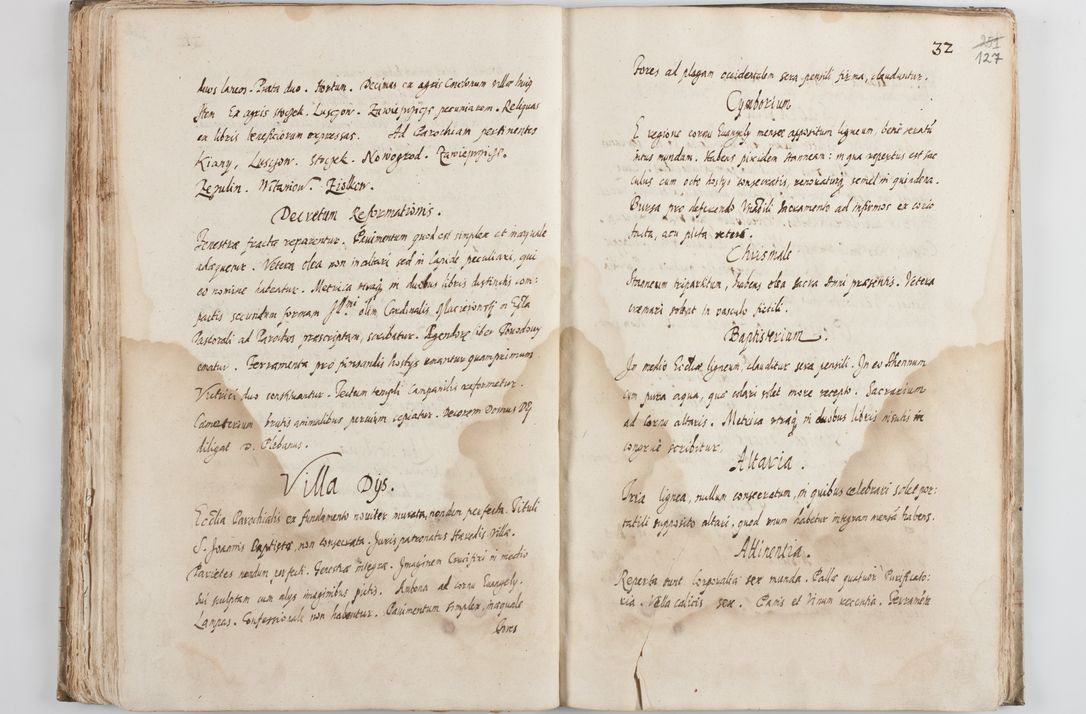 duos laneos. Prata duo. Hortum. Decimas ex agris Cmethonum villæ huiq
Item Ex agris stoczek. Lusczow. Zawiepryczs pecuniariam. Reliquas
ex libris beneficiorum expressas. Ad Parochiam pertinentes
Kiany, Lusczow. Stoczek. Nowogrod. Zawiepryczs.
Zezulin. Witaniow. Ziolkow.
Decretum Reformationis.
Fenestræ fractæ reparentur. Pauimentum quod est simplex et inæquale
adæquetur. Vetera olea non in altari sed in lapide peculiari, qui
eo nomine habeatur. Metrica utraq in duobus libris distinctis com:
pactis secundum formam Illmi olim Cardinalis Macieiowsky in Epla
Pastorali ad Parochos præscriptam, scribatur. Agendorum liber
ematur. Ferramenta pro formandis hostys emantur quamprimum
Vitrici duo constituantur. Tectum templi Campanilis reformetur.
Cæmeterium brutis animalibus peruium sepiatur. Decorem Domus Dei
diligat D. Plebanus.
Villa Dys.
Ecclia Parochialis ex fundamento nouiter murata, nondum perfecta. Tituli
S. Joannis Baptistæ, non consecrata. Juris patronatus Hæredis villæ.
Parietes nondum perfecti. Fenestræ integræ. Imaginem Crucifixi in medio
sui sculptam cum alys imaginibus pictis. Ambona ad cornu Euangely.
Lampas. Confessionale non habentur. Pauimentum simplex, inæquale
fores
32
127
Fores ad plagam occidentalem sera pensili firma, clauduntur.
Cymborium
E regione cornu Euangely mensæ appositum ligneum, bene seratū
intus mundum. Habens pixidem stanneam: in qua repertus est sac
culus cum octo hostys consecratis, renouatur semel in quindena.
Bursa pro deferendo Viatili Sacramento ad infirmos ex corio
facta, acu picta vetera.
Chrismale
Stanneum tripartitum, habens olea sacra Anni præsentis. Vetera
cremari in vasculo fictili.
Baptisterium.
In medio Eccliæ ligneum, clauditur sera pensili. In eo Ahennum
cum pura aqua, quæ colari solet more recepto. Sacrarium
ad Cornu altaris. Metrica utraq in duobus libris
congruè scribitur.
Altaria.
Tria lignea, nullum consecratum, in quibus celebrari solet por:
tatili supposito altari, quod unum habetur integram mensā habens.
Attinentia.
Reperta sunt Corporalia sex munda. Pallæ quatuor Purificato:
ria. Vella calicis sex. Panis et Vinum recentia. Ferramēta